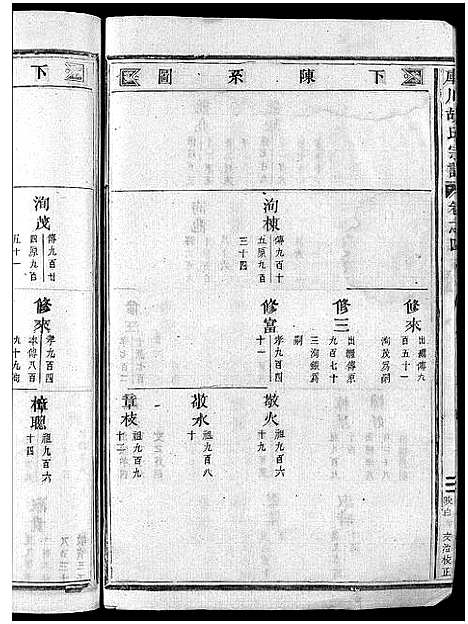 庫川胡氏宗譜 卷之四
下陳系圖
洵棟
傳九百十
五原九百
三十四
修來
出繼傳九
百五十一
洵茂爲嗣
修三
出繼傳原
九百七十
三洵銀爲
嗣
修富
孝九百四
十一
敬火
祖九百八
十九
敬水
祖九百八
十
章枝
祖九百九
十三
下
洵茂
傳九百廿
四原九百
五十一
修來
孝九百四
本傳八百
九十九洵
樟聰
祖九百六
十四